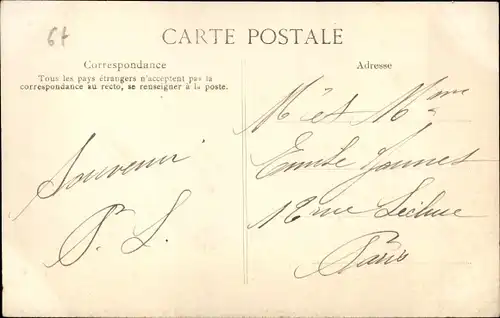 6f
CARTE POSTALE
Correspondance
Tous les pays étrangers n'acceptent pas la
correspondance au recto, se renseigner à la poste.
Adresse
Souvenir
P. L.
Mr et Mme
Emile
12 rue Leclue
Paris